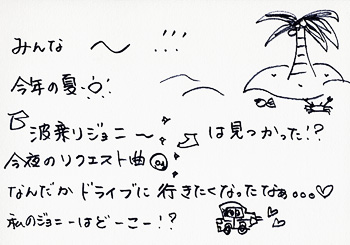 みんな 〜 !!!
今年の夏 !
波乗りジョニ〜 は見つかった!?
今夜のリクエスト曲
なんだかドライブに行きたくなったなぁ...♡
私のジョニーはどーこー!?